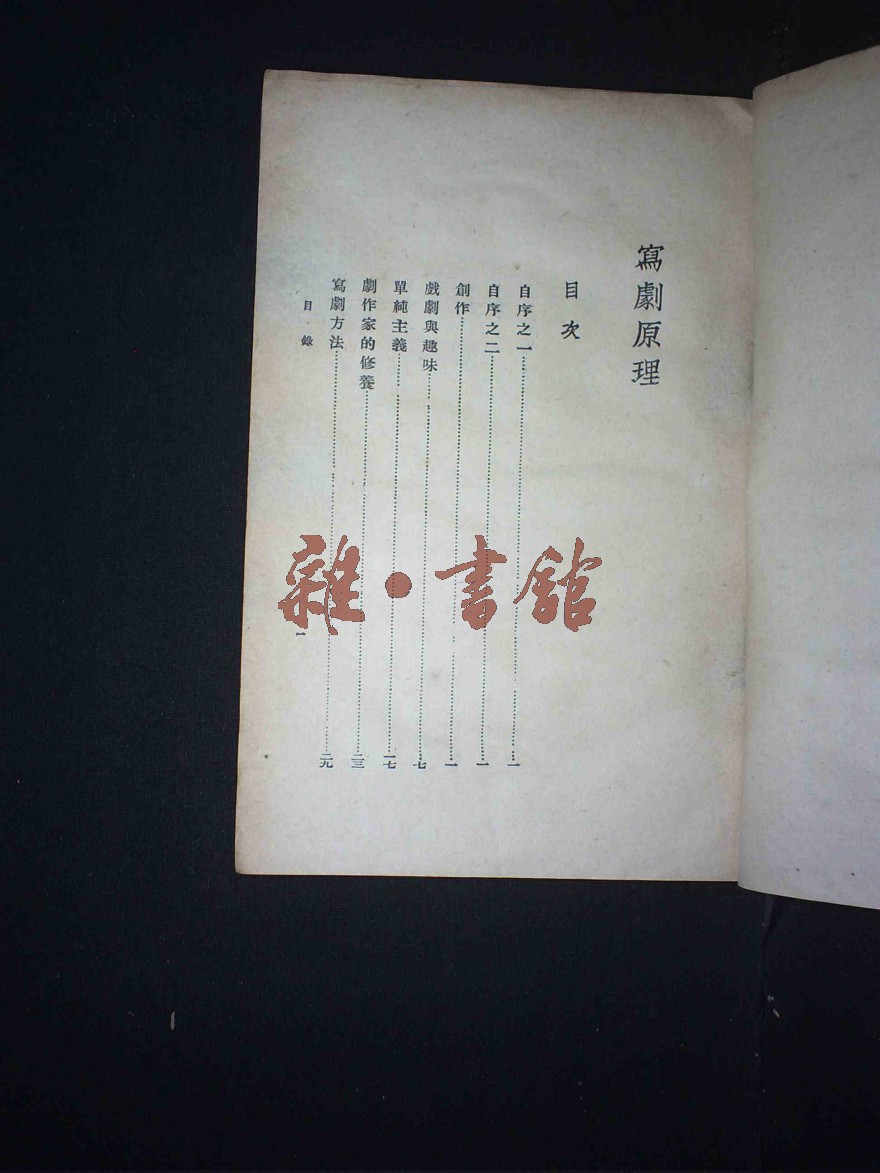 寫劇原理
目次
自序之一……一
自序之二……一
創作……一
戲劇與趣味……七
單純主義……一七
劇作家的修養……二三
寫劇方法……二九
目錄
一
雜·書館